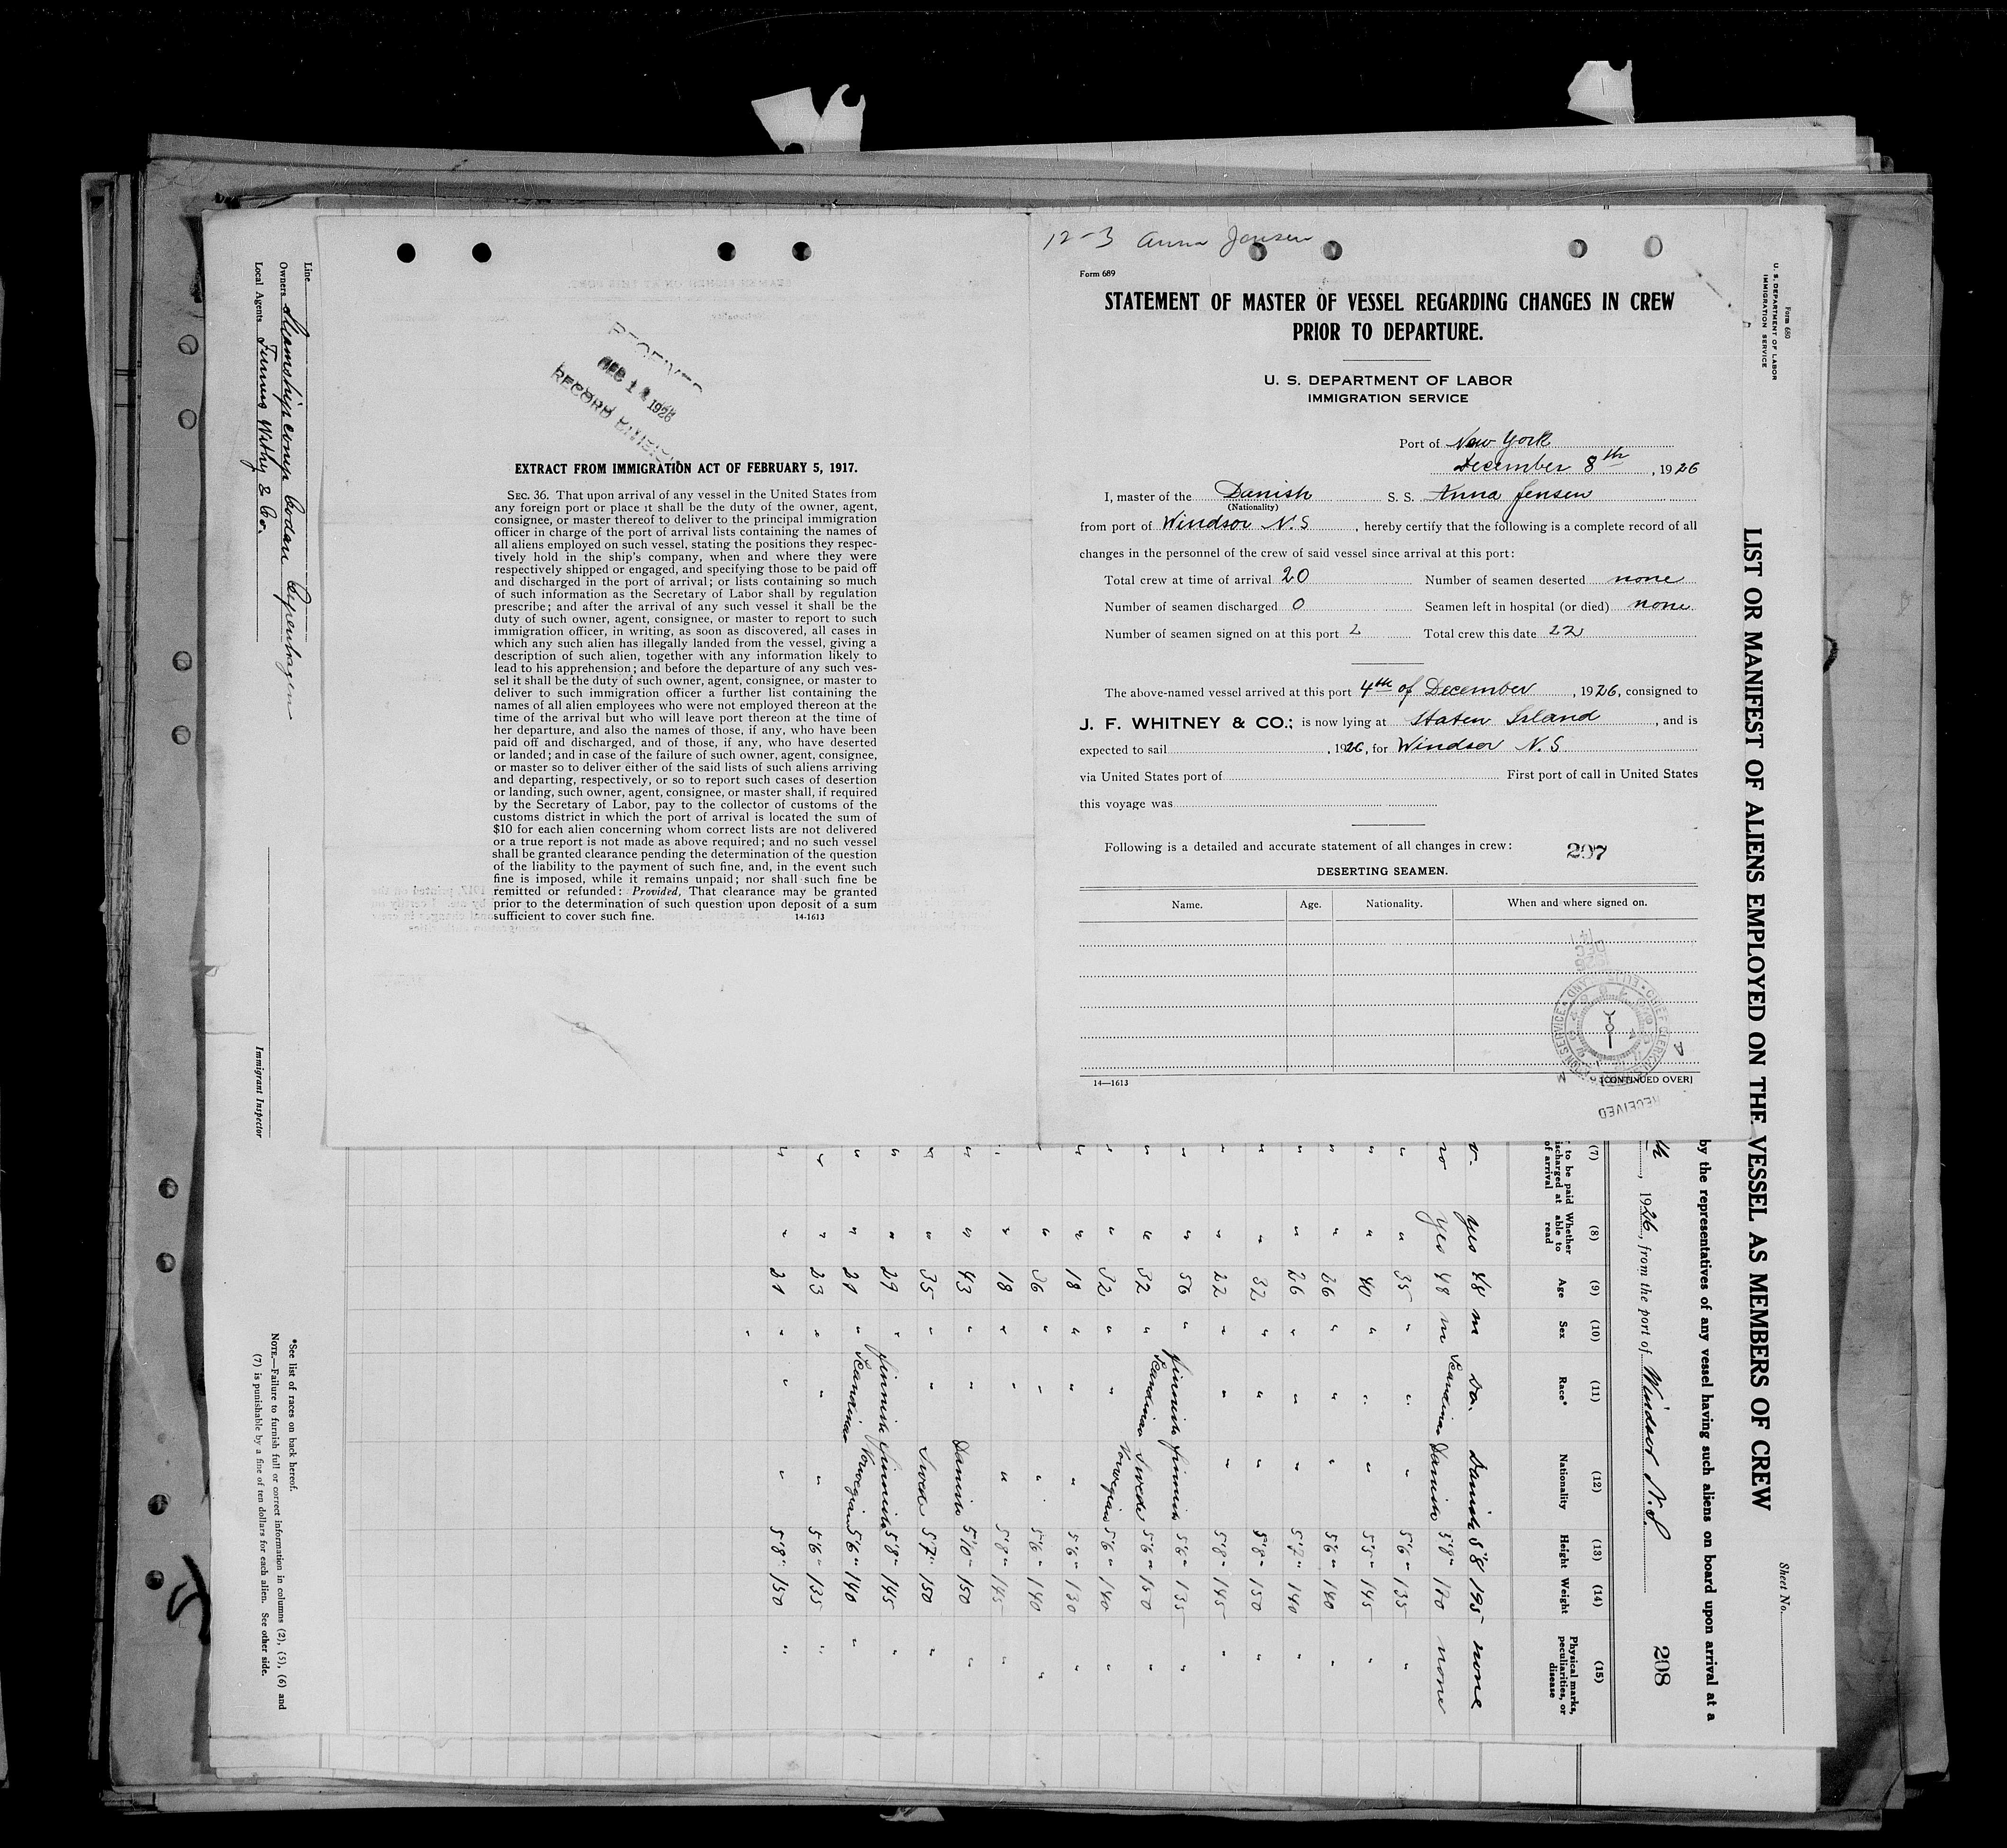 12-3 Anna Jensen
Form 689
STATEMENT OF MASTER OF VESSEL REGARDING CHANGES IN CREW
PRIOR TO DEPARTURE.
U. S. DEPARTMENT OF LABOR
IMMIGRATION SERVICE
Port of New York
December 8th, 1926
I, master of the Danish S. S. Anna Jensen
(Nationality)
from port of Windsor N.S, hereby certify that the following is a complete record of all
changes in the personnel of the crew of said vessel since arrival at this port:
Total crew at time of arrival 20 Number of seamen deserted none
Number of seamen discharged 0 Seamen left in hospital (or died) none
Number of seamen signed on at this port 2 Total crew this date 22
The above-named vessel arrived at this port 4th of December, 1926, consigned to
J. F. WHITNEY & CO.; is now lying at Staten Island, and is
expected to sail , 1926, for Windsor N.S
via United States port of First port of call in United States
this voyage was
Following is a detailed and accurate statement of all changes in crew:
297
DESERTING SEAMEN.
Name. Age. Nationality. When and where signed on.
14—1613 [CONTINUED OVER]
RECEIVED
RECEIVED
DEC 1 1926
RECORD DIVISION
EXTRACT FROM IMMIGRATION ACT OF FEBRUARY 5, 1917.
SEC. 36. That upon arrival of any vessel in the United States from
any foreign port or place it shall be the duty of the owner, agent,
consignee, or master thereof to deliver to the principal immigration
officer in charge of the port of arrival lists containing the names of
all aliens employed on such vessel, stating the positions they respec-
tively hold in the ship's company, when and where they were
respectively shipped or engaged, and specifying those to be paid off
and discharged in the port of arrival; or lists containing so much
of such information as the Secretary of Labor shall by regulation
prescribe; and after the arrival of any such vessel it shall be the
duty of such owner, agent, consignee, or master to report to such
immigration officer, in writing, as soon as discovered, all cases in
which any such alien has illegally landed from the vessel, giving a
description of such alien, together with any information likely to
lead to his apprehension; and before the departure of any such ves-
sel it shall be the duty of such owner, agent, consignee, or master to
deliver to such immigration officer a further list containing the
names of all alien employees who were not employed thereon at the
time of the arrival but who will leave port thereon at the time of
her departure, and also the names of those, if any, who have been
paid off and discharged, and of those, if any, who have deserted
or landed; and in case of the failure of such owner, agent, consignee,
or master so to deliver either of the said lists of such aliens arriving
and departing, respectively, or so to report such cases of desertion
or landing, such owner, agent, consignee, or master shall, if required
by the Secretary of Labor, pay to the collector of customs of the
customs district in which the port of arrival is located the sum of
$10 for each alien concerning whom correct lists are not delivered
or a true report is not made as above required; and no such vessel
shall be granted clearance pending the determination of the question
of the liability to the payment of such fine, and, in the event such
fine is imposed, while it remains unpaid; nor shall such fine be
remitted or refunded: Provided, That clearance may be granted
prior to the determination of such question upon deposit of a sum
sufficient to cover such fine. 14-1613
Form 680
U. S. DEPARTMENT OF LABOR
IMMIGRATION SERVICE
Sheet No.
LIST OR MANIFEST OF ALIENS EMPLOYED ON THE VESSEL AS MEMBERS OF CREW
by the representatives of any vessel having such aliens on board upon arrival at a
th, 1926, from the port of Windsor N.S.
208
(7) (8) (9) (10) (11) (12) (13) (14) (15)
to be paid
discharged at
of arrival
Whether
able to
read
Age Sex Race* Nationality Height Weight
Physical marks,
peculiarities, or
disease
yes 48 m Do. Danish 5'8 195 none
no yes 48 m Scandina Danish 5'8" 170 none
" " 35 " " " 5'6 " 135 "
" " 40 " " " 5'5 " 145 "
" " 26 " " " 5'6 " 140 "
" " 26 " " " 5'7 " 140 "
" " 32 " " " 5'8 " 150 "
" " 22 " " " 5'8 " 145 "
" " 56 " Finnish Finnish 5'6 " 135 "
" " 32 " Scandinav Swede 5'6 " 150 "
" " 32 " " Norwegian 5'6 " 140 "
" " 18 " " " 5'6 " 130 "
" " 36 " " " 5'6 " 140 "
" " 18 " " " 5'8 " 145 "
" " 43 " " Danish 5'10 " 150 "
" " 35 " " Swede 5'7" 150 "
" " 29 " Finnish Finnish 5'8" 145 "
" " 21 " Scandinav Norwegian 5'6" 140 "
" " 23 " " " 5'6" 135 "
" " 21 " " " 5'8" 150 "
Line
Owners Steamship comp. Codan Copenhagen
Local Agents Furness Withy & Co.
Immigrant Inspector
*See list of races on back hereof.
NOTE.—Failure to furnish full or correct information in columns (2), (5), (6) and
(7) is punishable by a fine of ten dollars for each alien. See other side.